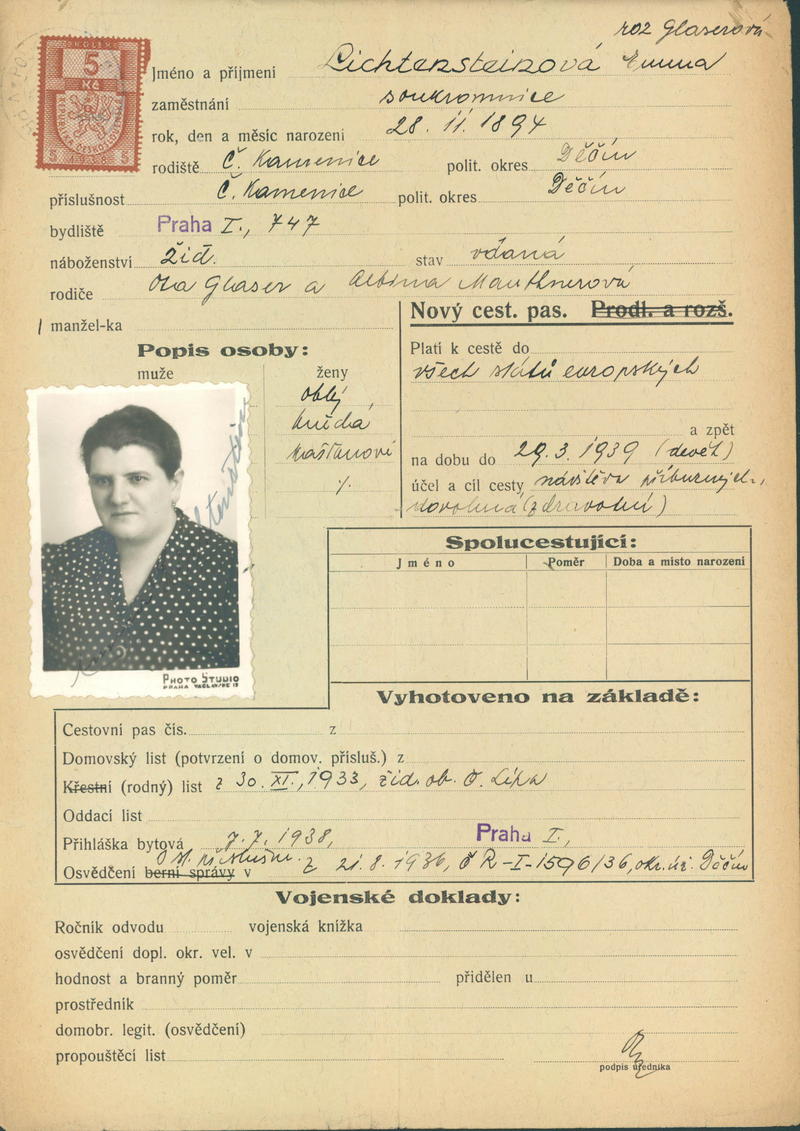 roz Glaserová
KOLEK
5
Kč
REPUBLIKA ČESKOSLOVENSKÁ
5 1938 5
Jméno a příjmení Lichtensteinová Emma
zaměstnání soukromnice
rok, den a měsíc narození 28. 11. 1894
rodiště Č. Kamenice polit. okres Děčín
příslušnost Č. Kamenice polit. okres Děčín
bydliště Praha I., 747
náboženství žid. stav vdaná
rodiče Ota Glaser a Albina Mauthnerová
manžel-ka
Nový cest. pas. Prodl. a rozš.
Popis osoby:
muže ženy
oblý
hnědá
kaštanové
%
Platí k cestě do
všech států evropských
a zpět
na dobu do 29. 3. 1939 (devět)
účel a cíl cesty návštěva příbuzných,
dovolená (zdravotní)
PHOTO STUDIO
Spolucestující:
Jméno Poměr Doba a místo narození
Vyhotoveno na základě:
Cestovní pas čís. z
Domovský list (potvrzení o domov. přísluš.) z
Křestní (rodný) list z 30. XI., 1933, žid. ob. Č. Lípa
Oddací list
Přihláška bytová 7. 7. 1938, Praha I,
Osvědčení berní správy v O st. příslušn. z 21. 8. 1936, Č R-I-1596/36, okr. úř. Děčín
Vojenské doklady:
Ročník odvodu vojenská knížka
osvědčení dopl. okr. vel. v
hodnost a branný poměr přidělen u
prostředník
domobr. legit. (osvědčení)
propouštěcí list
podpis úředníka